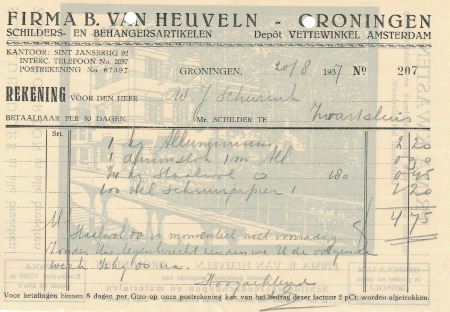 FIRMA B. VAN HEUVELN - GRONINGEN
SCHILDERS- EN BEHANGERSARTIKELEN Depôt VETTEWINKEL AMSTERDAM
KANTOOR: SINT JANSBRUG 92
INTERC. TELEFOON No. 2037
POSTREKENING No. 67397
GRONINGEN, 20/8 1937 No 207
REKENING VOOR DEN HEER W J Schurink
BETAALBAAR PER 30 DAGEN. MR. SCHILDER TE Zwartsluis
1 kg Alluminium 2 20
1 duimstok 1 m
1/4 kg Staalwol 0 180 0 45
100 vel Schuurpapier 1 2 20
4 75
Staalwol 00 is momenteel niet voorradig
Zonder Uw tegenbericht zenden we U de volgende
week 00 na.
Hoogachtend
Voor betalingen binnen 8 dagen per Giro op onze postrekening kan van het bedrag dezer factuur 2 pCt. worden afgetrokken.